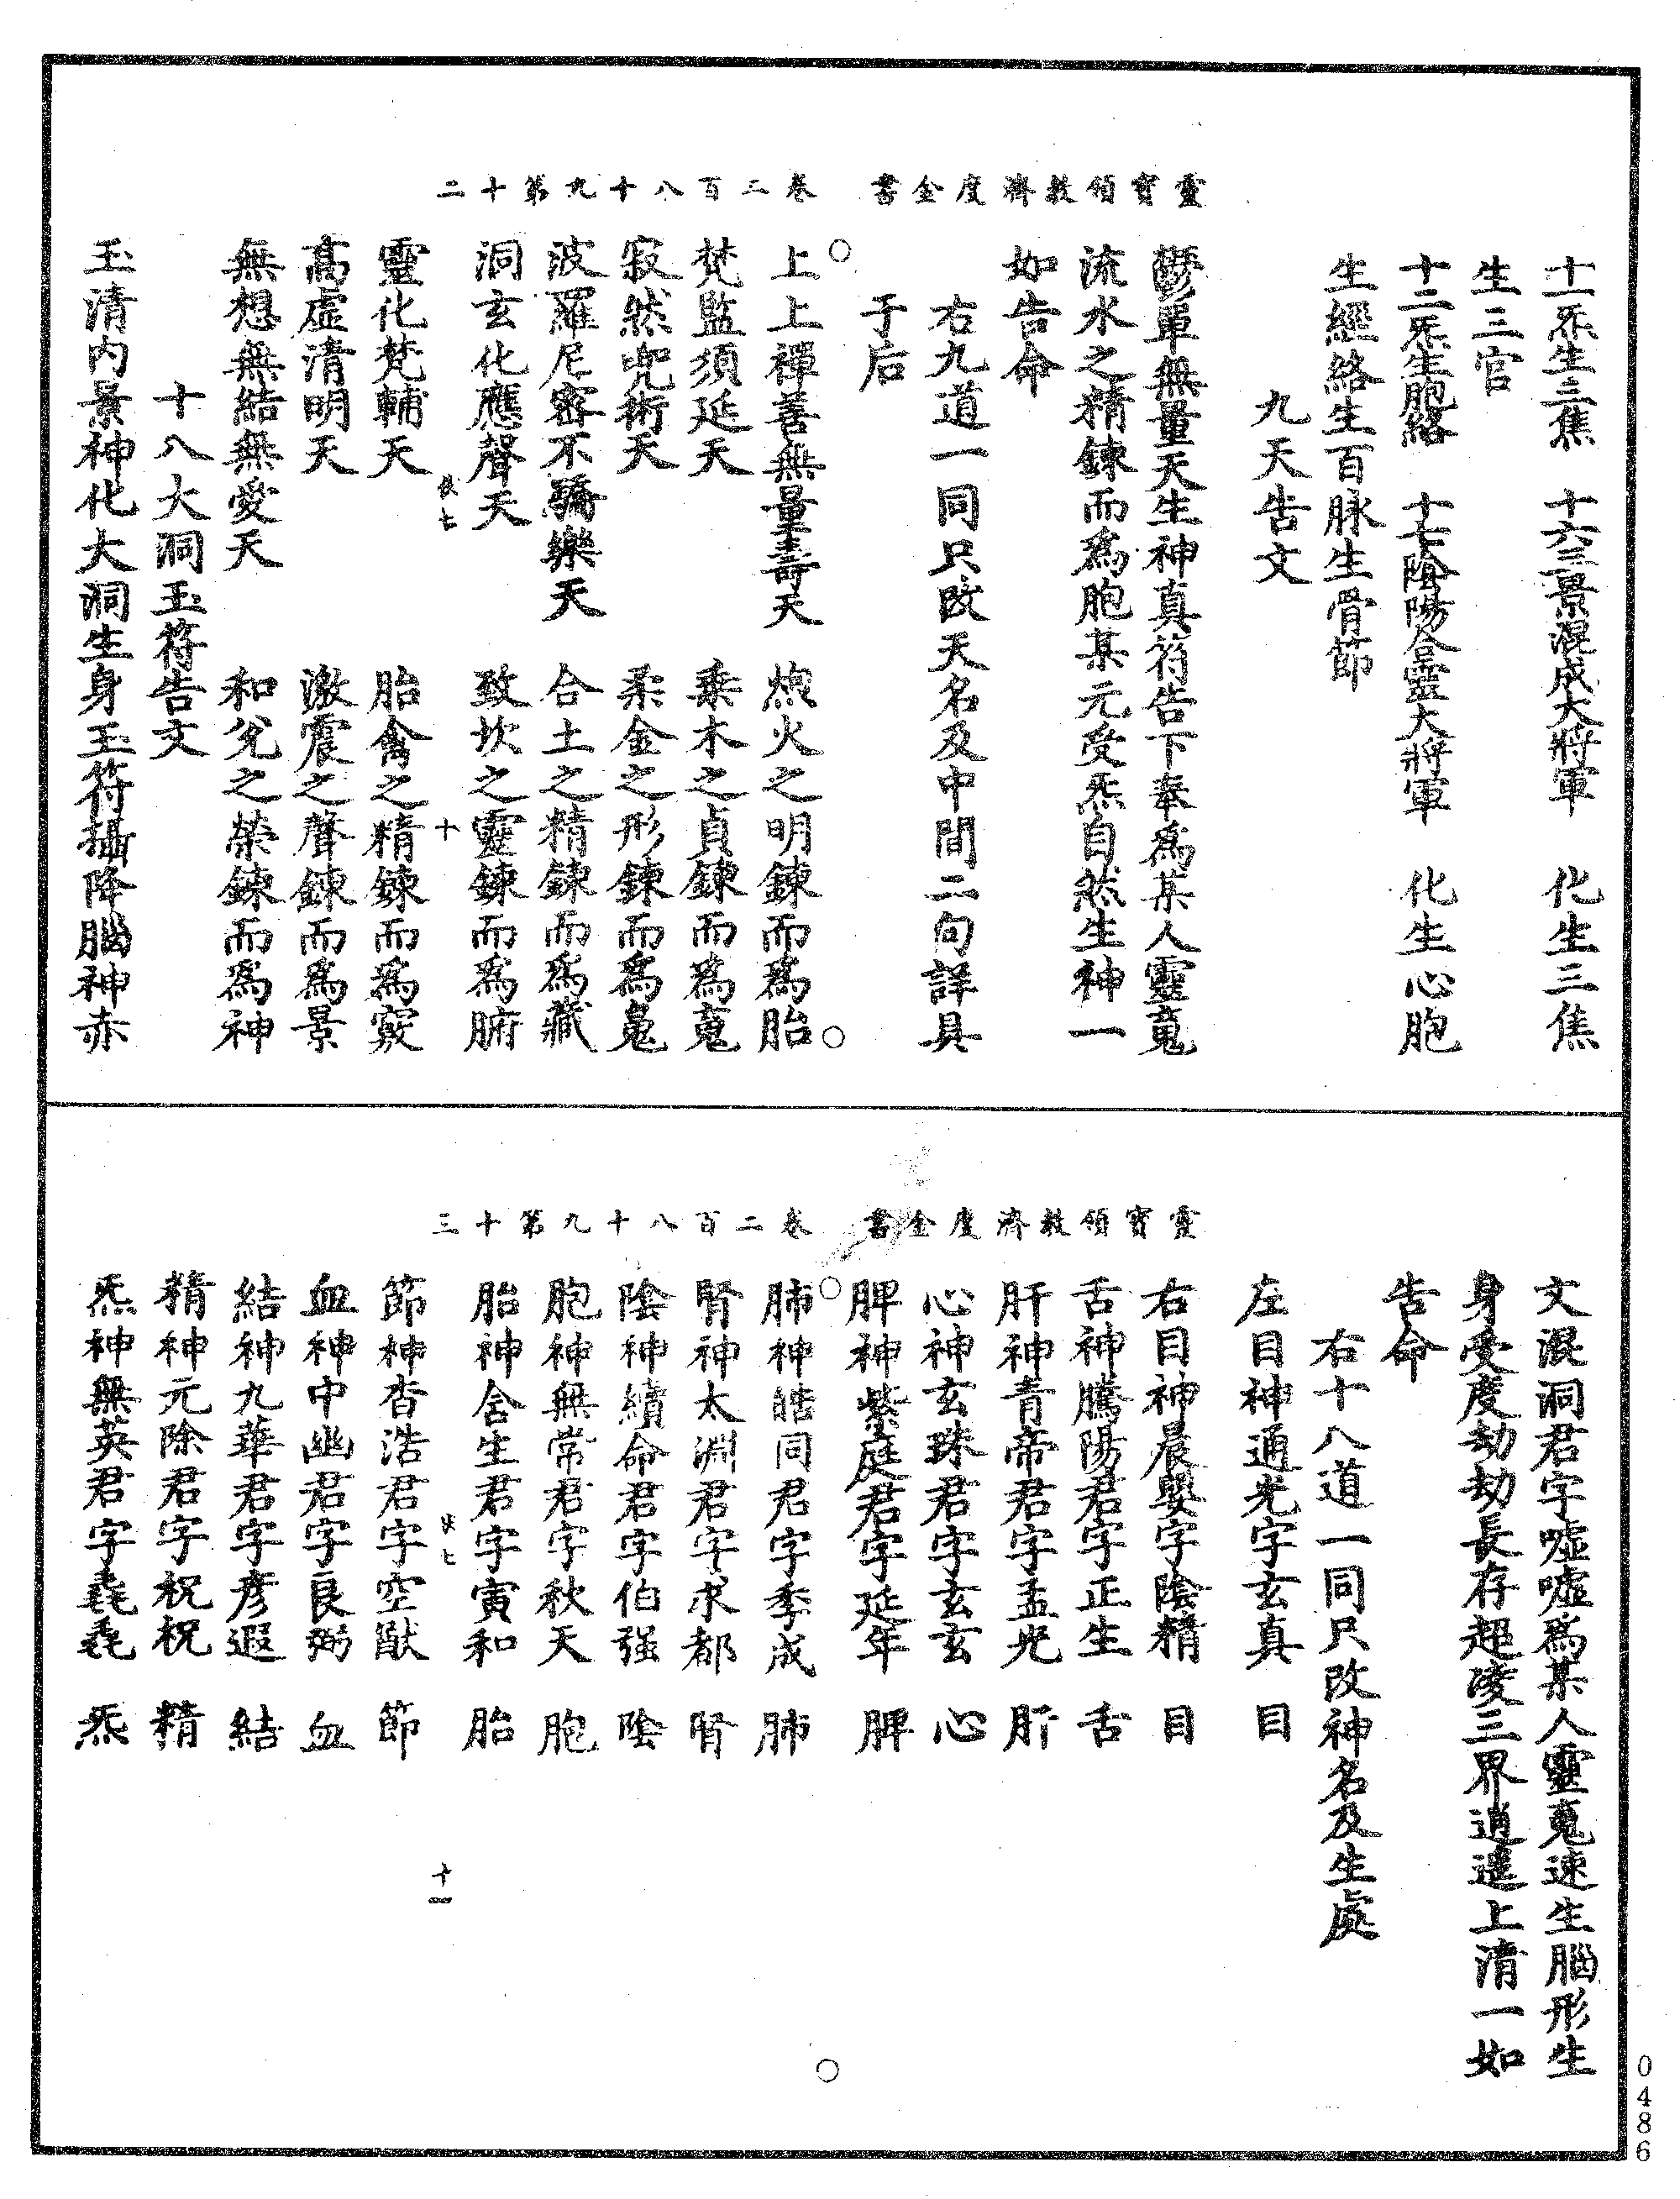 靈寶領教濟度金書　卷二百八十九第十二
十一炁生三焦　十六三景混成大將軍　化生三焦
生三官
十二炁生胞絡　十七陰陽合靈大將軍　化生心胞
生經絡生百脉生骨節
九天告文
鬱單無量天生神真符告下奉爲某人靈䰟
流水之精鍊而爲胞某元受炁自然生神一
如告命
右九道一同只改天名及中間二句詳具
于后
上上禪善無量壽天　烜火之明鍊而爲胎
梵監須延天　乗木之貞鍊而爲䰟
寂然兜術天　柔金之形鍊而爲魄
波羅尼密不驕樂天　合土之精鍊而爲藏
洞玄化應聲天　致坎之靈鍊而爲腑
十
靈化梵輔天　胎禽之精鍊而爲竅
高虛清明天　激震之聲鍊而爲景
無想無結無愛天　和兊之榮鍊而爲神
十八大洞玉符告文
玉清内景神化大洞生身玉符攝降腦神赤
靈寶領教濟度金書　卷二百八十九第十三
文混洞君字噓噓爲某人靈䰟速生腦形生
身受度劫劫長存超陵三界逍遥上清一如
告命
右十八道一同只改神名及生處
左目神通光字玄真　目
右目神晨嬰字陰精　目
舌神騰陽君字正生　舌
肝神青帝君字孟光　肝
心神玄珠君字玄玄　心
脾神紫庭君字延年　脾
肺神皓同君字季成　肺
腎神太淵君字求都　腎
陰神續命君字伯强　陰
胞神無常君字秋天　胞
胎神含生君字寅和　胎
十一
節神杳浩君字空猷　節
血神中幽君字良弼　血
結神九華君字彦遐　結
精神元除君字祝祝　精
炁神無英君字毳毳　炁
0486